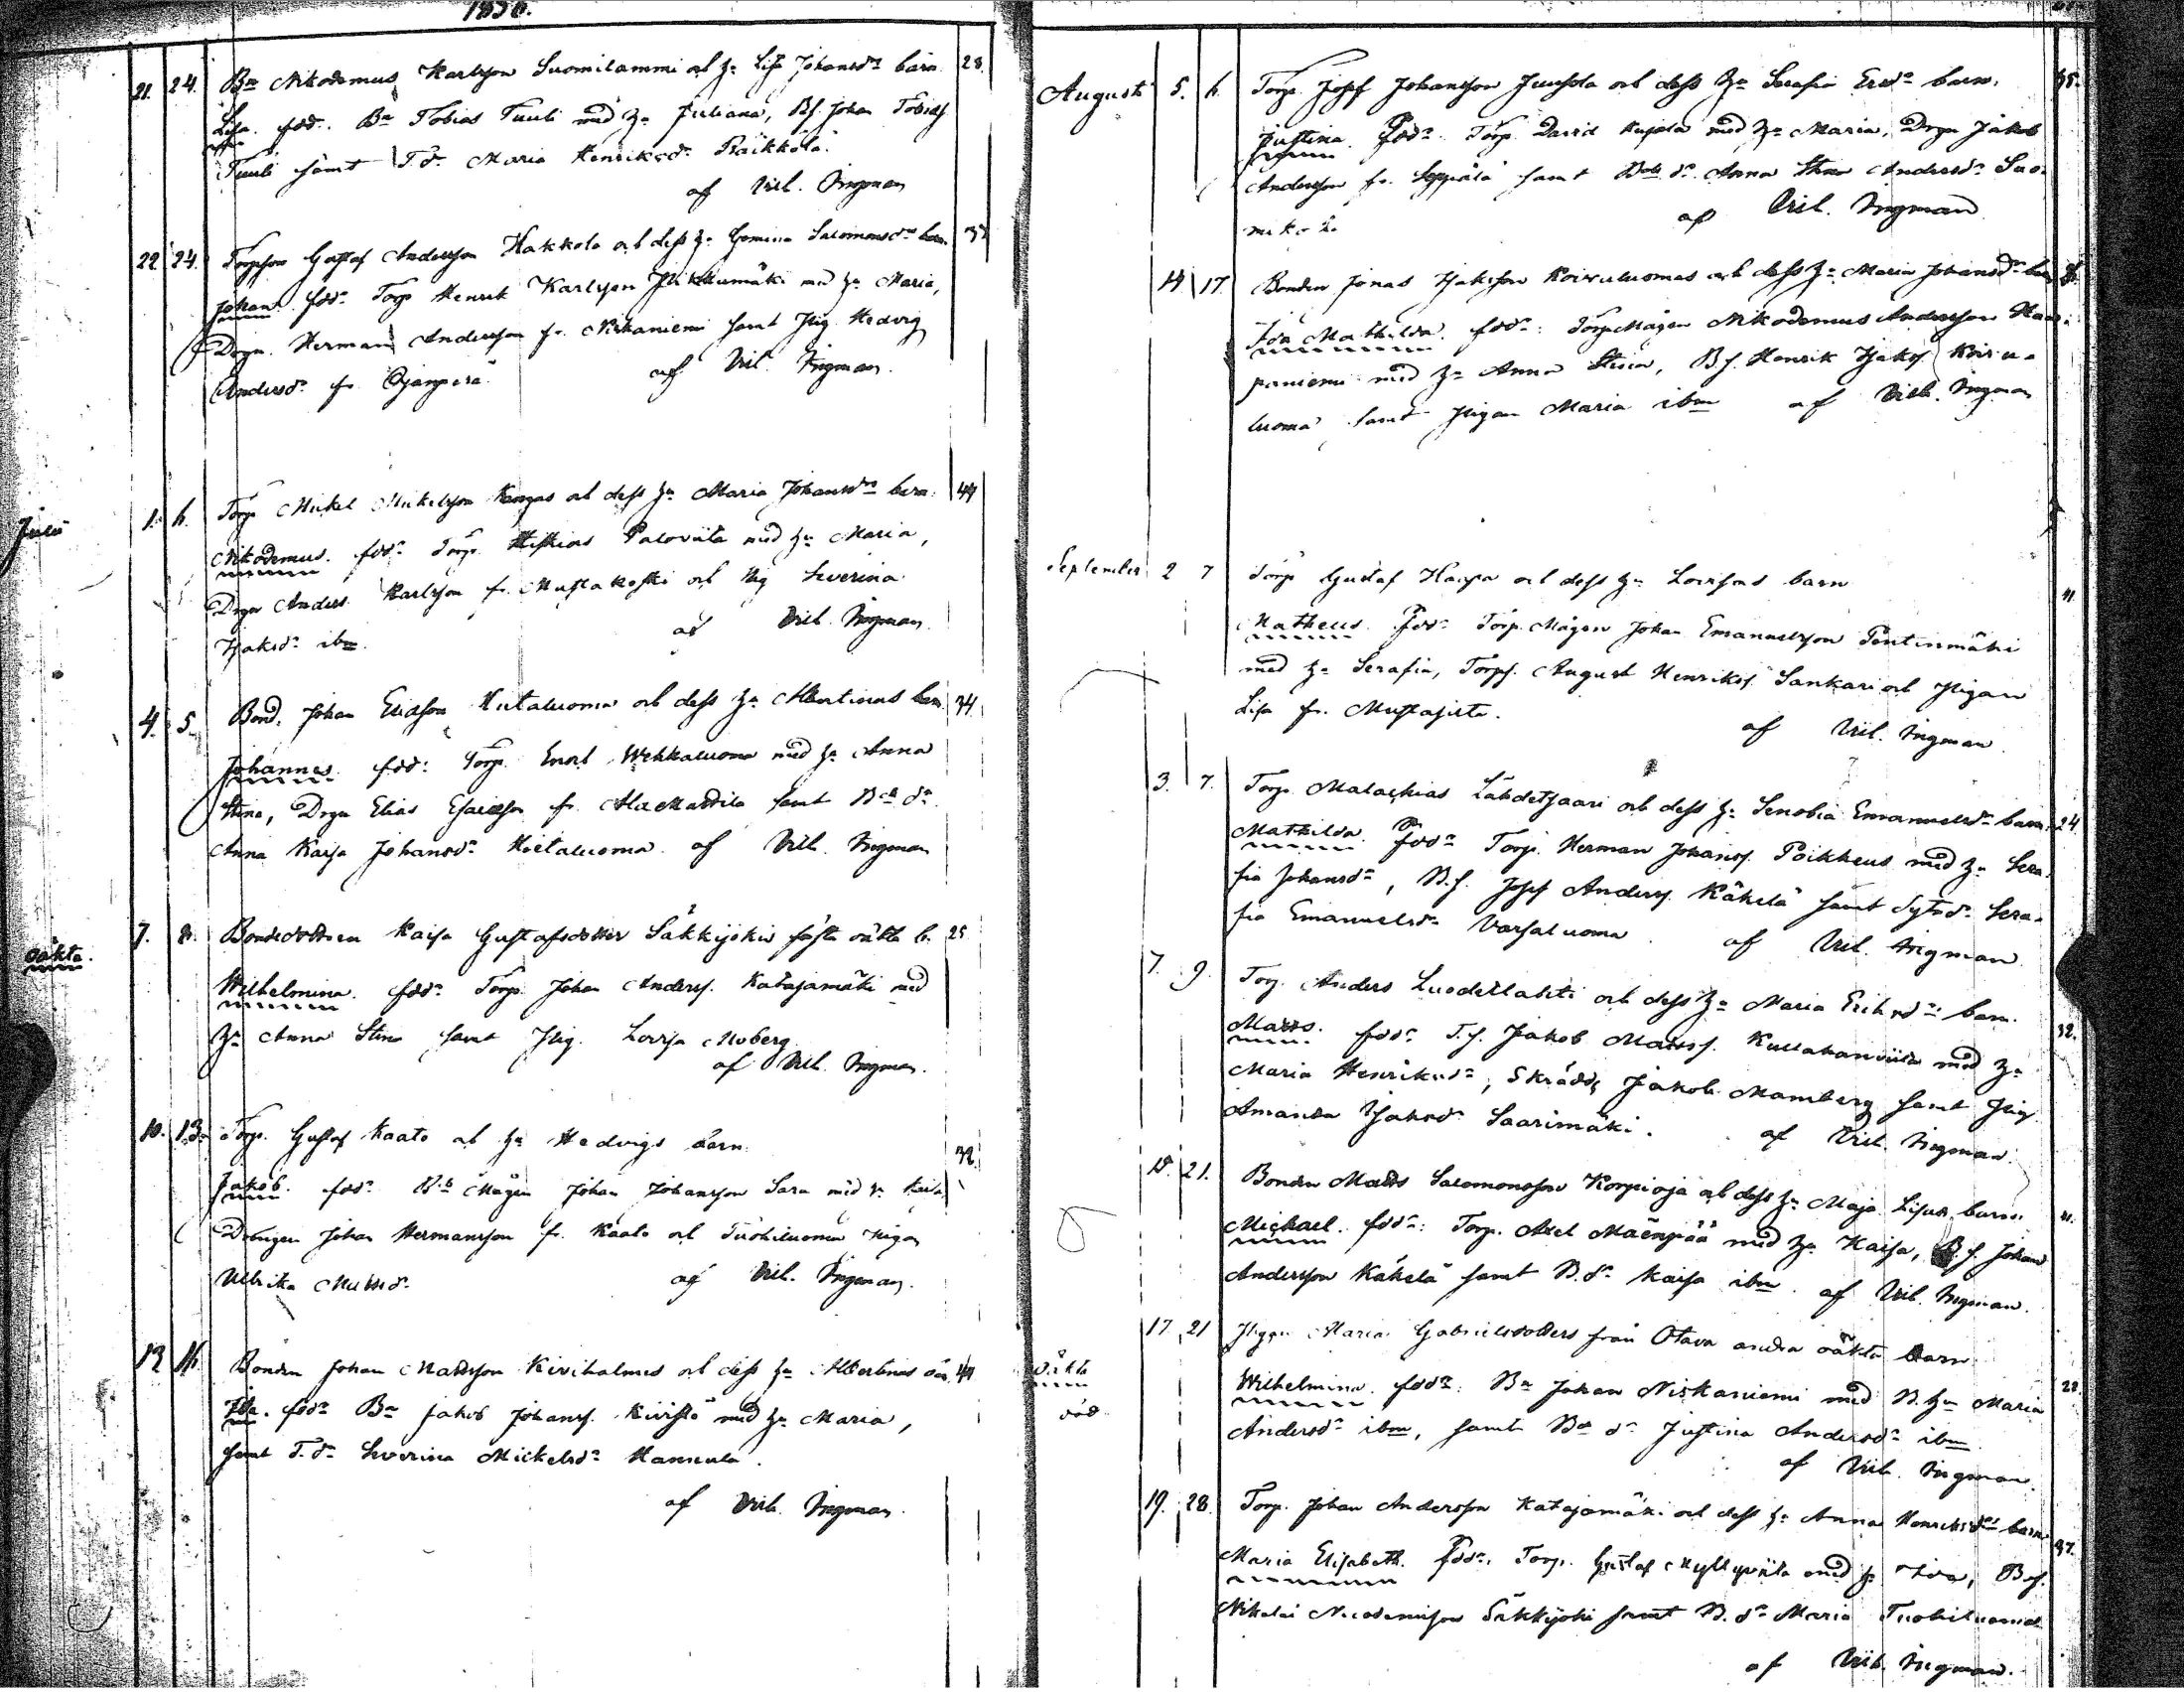 1856.
21. 24. Bn Nikodemus Karlsson Suomilammi och hu Lisa Johansdr barn 28.
Lisa. fdd. Bn Tobias Tuuli med hu Juliana, Bs. Johan Tobias
Tuuli samt T.dr Maria Henriksdr Räikkölä.
af Vil. Ingman
22. 24. Torpson Gustaf Andersson Hakkola och dess hu Gemina Salomonsdrs barn
Johan fddr Torp Henrik Karlsson Pikkumäki med hu Maria,
Drgn. Herman Andersson fr. Niskaniemi samt Pig. Hedvig
Andersdr fr. Ojanperä af Vil. Ingman.
Julii 1. 6. Torp Mickel Mickelsson Kangas och dess hu Maria Johansdrs barn. 44
Nikodemus. fddr Torp. Hiskias Paloviita med hu Maria,
Drgn Anders Karlsson fr. Mustakoski och Pig Severina
Isaksdr ibm. af Vil. Ingman.
4. 5. Bond. Johan Eliasson Hietaluoma och dess hu Albertinas barn. 34.
Johannes. fddr Torp. Enok Wehkaluoma med hu Anna
Stina, Drgn Elias Esaiasson fr. AlaMattila samt Bdr
Anna Kajsa Johansdr Hietaluoma. af Vil. Ingman
oäkta. 7. 8. Bondedottren Kaisa Gustafsdotter Säkkijokis första oäkta b. 25
Wilhelmina. fddr Torp. Johan Anderss. Katajamäki med
hu Anna Stina samt Pig. Lovisa Moberg.
af Vil. Ingman.
10. 13. Torp. Gustaf Kaato och hu Hedvigs barn. 32.
Jakob. fddr Mågen Johan Johansson Sara med h. Kaisa
Drängen Johan Hermansson fr. Kaato och Tuohiluoma Pigan
Ulrika af Vil. Ingman.
13 16. Bonden Johan Mattsson Kivihalmes och dess hu Albertinas 41
Ida. fddr Bn Jakob Johanss. Kuivisto med hu Maria,
samt T.dr Severina Mickelsdr Hannula.
af Vil. Ingman.
August 5. 6. Torp. Josef Johansson Juusola och dess hu Serafia Ersdr barn. 35.
Justina. fddr Torp. David Kujala med hu Maria, Drgn Jakob
Andersson fr. Seppälä samt Anna Stina Andersdr Suo-
af Vil. Ingman
14. 17. Bonden Jonas Isaksson Koivuluomas och dess hu Maria Johansdrs barn
Ida Mathilda. fddr: TorpMågen Nikodemus Andersson Haa-
paniemi med hu Anna Stina, B.s. Henrik Isaks. Koivu-
luoma samt Pigan Maria ibm af Vilh. Ingman
September 2 7 Torp Gustaf Haapa och dess hu Lovisas barn 41.
Matheus. fddr Torp. Mågen Johan Emanuelsson Pentinmäki
med hu Serafia, Torps. August Henrikss. Sankari och Pigan
Lisa fr. Mustajista.
af Vil. Ingman.
3. 7. Torp. Malachias Lähdetjaari och dess hu Senobia Emanuelsdrs barn. 24.
Mathilda. fddr Torp. Herman Johanss. Poikkeus med hu Sera-
fia Johansdr, B.s. Josef Anderss. Käkelä samt Sytn.dr Sera-
fia Emanuelsdr Varsaluoma af Vil. Ingman
7. 9. Torp. Anders Luodetlahti och dess hu Maria Eriksdrs barn. 32.
Matts. fddr T.s. Jakob Mattss. Kullakanviita med hu
Maria Henriksdr, Skrädd. Jakob Mamberg samt Pig.
Amanda Isaksdr Saarimäki. af Vil. Ingman.
18. 21. Bonden Matts Salomonsson Korpioja och dess hu Maja Lisas barn. 41.
Michael. fddr: Torp. Axel Mäenpää med hu Kaisa, B.s. Johan
Andersson Käkelä samt B.dr Kaisa ibm. af Vil. Ingman.
oäkta
död
17 21 Pigan Maria Gabrielsdotters från Otava andra oäkta Barn 28.
Wilhelmina. fddr: Bn Johan Niskaniemi med B.hu Maria
Andersdr ibm, samt Bdr Justina Andersdr ibm.
af Vil. Ingman.
19. 28. Torp. Johan Andersson Katajamäki och dess hu Anna Henriksdrs barn 37.
Maria Elisabeth. fddr. Torp. Gustaf Myllyviita med h. Lisa, Bs.
Nikolai Nicodemisson Säkkijoki samt B.dr Maria Tuohiluoma
af Vilh. Ingman.